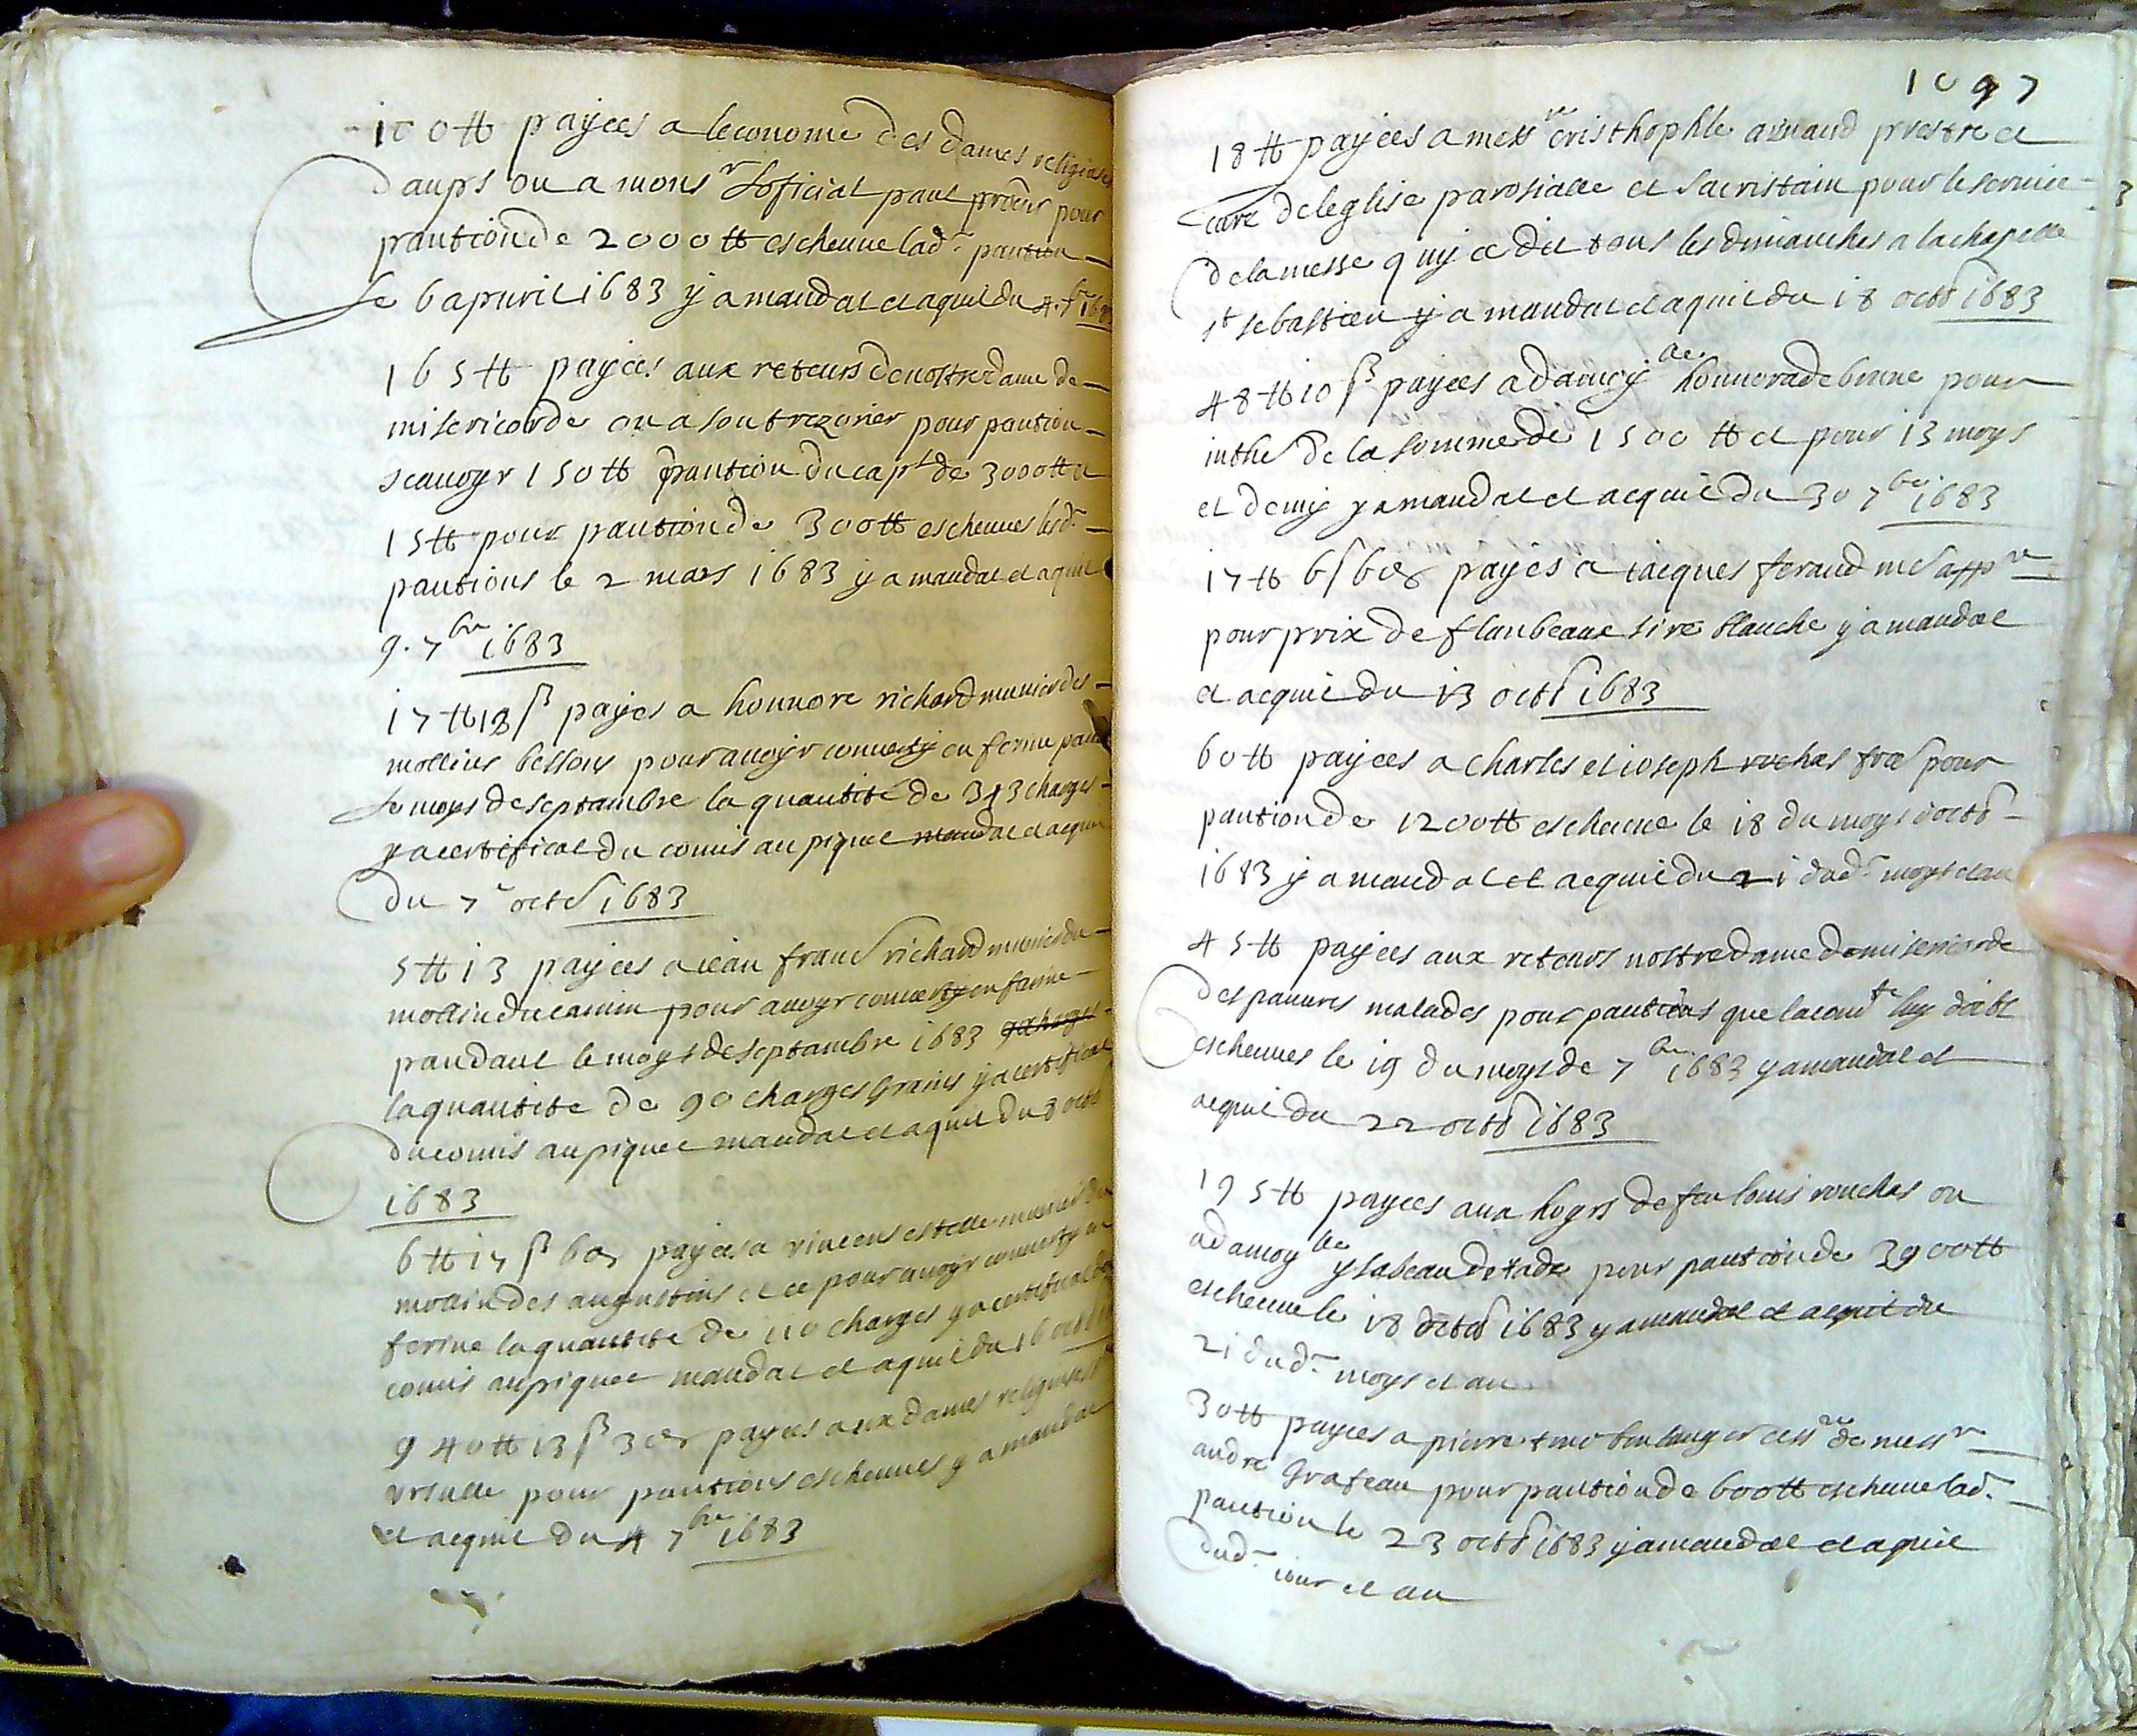 100 tt payees a leconome des dames religieuses
daups ou a mons r lofficial paul procur pour
pantion de 2000 tt escheuue lad. pantion
le 6 apvril 1683 y a mandat et aquit du 4.
165 tt payees aux reteurs de nostre dame de
misericorde ou a son trezorier pour pantion
scauoyr 150 tt pantion du cap l de 3000 tt et
15 tt pour pantion de 300 tt escheuues lesd.
pantions le 2 mars 1683 y a mandat et aquit
9. 7 bre 1683
17 tt 18 s payes a honnore richard munier des
mollins bessons pour auoyr conuerty en ferine pand
le moys de septambre la quantite de 343 charges
y a certificat du comis au piquet mandat et acquit
du 7 octb 1683
5 tt 13 payees a iean frans richaud munier du
mollin du camin pour auoyr conuerty en farine
pandant le moys de septambre 1683
la quantite de 90 charges grains y a certificat
du comis au piquet mandat et aquit du 8 octb
1683
6 tt 17 s 6 d payees a vincens estelle munier du
mollin des augustins et ce pour auoyr conuerty en
ferine la quantite de 110 charges y a certificat du
comis au piquet mandat et aquit du 16
940 tt 13 s 3 d payees aux dames religieuses
ursulle pour pantions escheuues y a mandat
et acquit du 4 7 bre 1683
1097
18 tt payees a mess re cristhophle arnaud prestre et
cure de leglise parosialle et sacristain pour le seruice
de la messe quy ce dit tous les dimanches a la chapelle
st sebastien y a mandat et aquit du 18 octb 1683
48 tt 10 s payees a damoy lle honnorade benne pour
inthe de la somme de 1500 tt et pour 13 moys
et demy y a mandat et acquit du 30 7 bre 1683
17 tt 6 s 6 d payes a iacques feraud md app re
pour prix de flanbeaux sire blanche y a mandat
et acquit du 13 octb 1683
60 tt payees a charles et ioseph rochas fres pour
pantion de 1200 tt escheuue le 18 du moys doctb
1683 y a mandat et acquit du 21 dud. moys et an
45 tt payees aux reteurs nostre dame de misericorde
des pauures malades pour pantions que la com te luy doibt
escheuues le 19 du moys de 7 bre 1683 y a mandat et
acquit du 22 octb 1683
195 tt payees aux hoyrs de feu louis rouchas ou
a damoy lle ysabeau pour pantion de 3900 tt
escheuue le 18 octob 1683 y a mandat et aquit du
21 dud. moys et an
30 tt payees a pierre boulanger cess re de mess re
andre grateau pour pantion de 600 tt escheuue lad.
pantion le 23 octb 1683 y a mandat et aquit
dud. iour et an